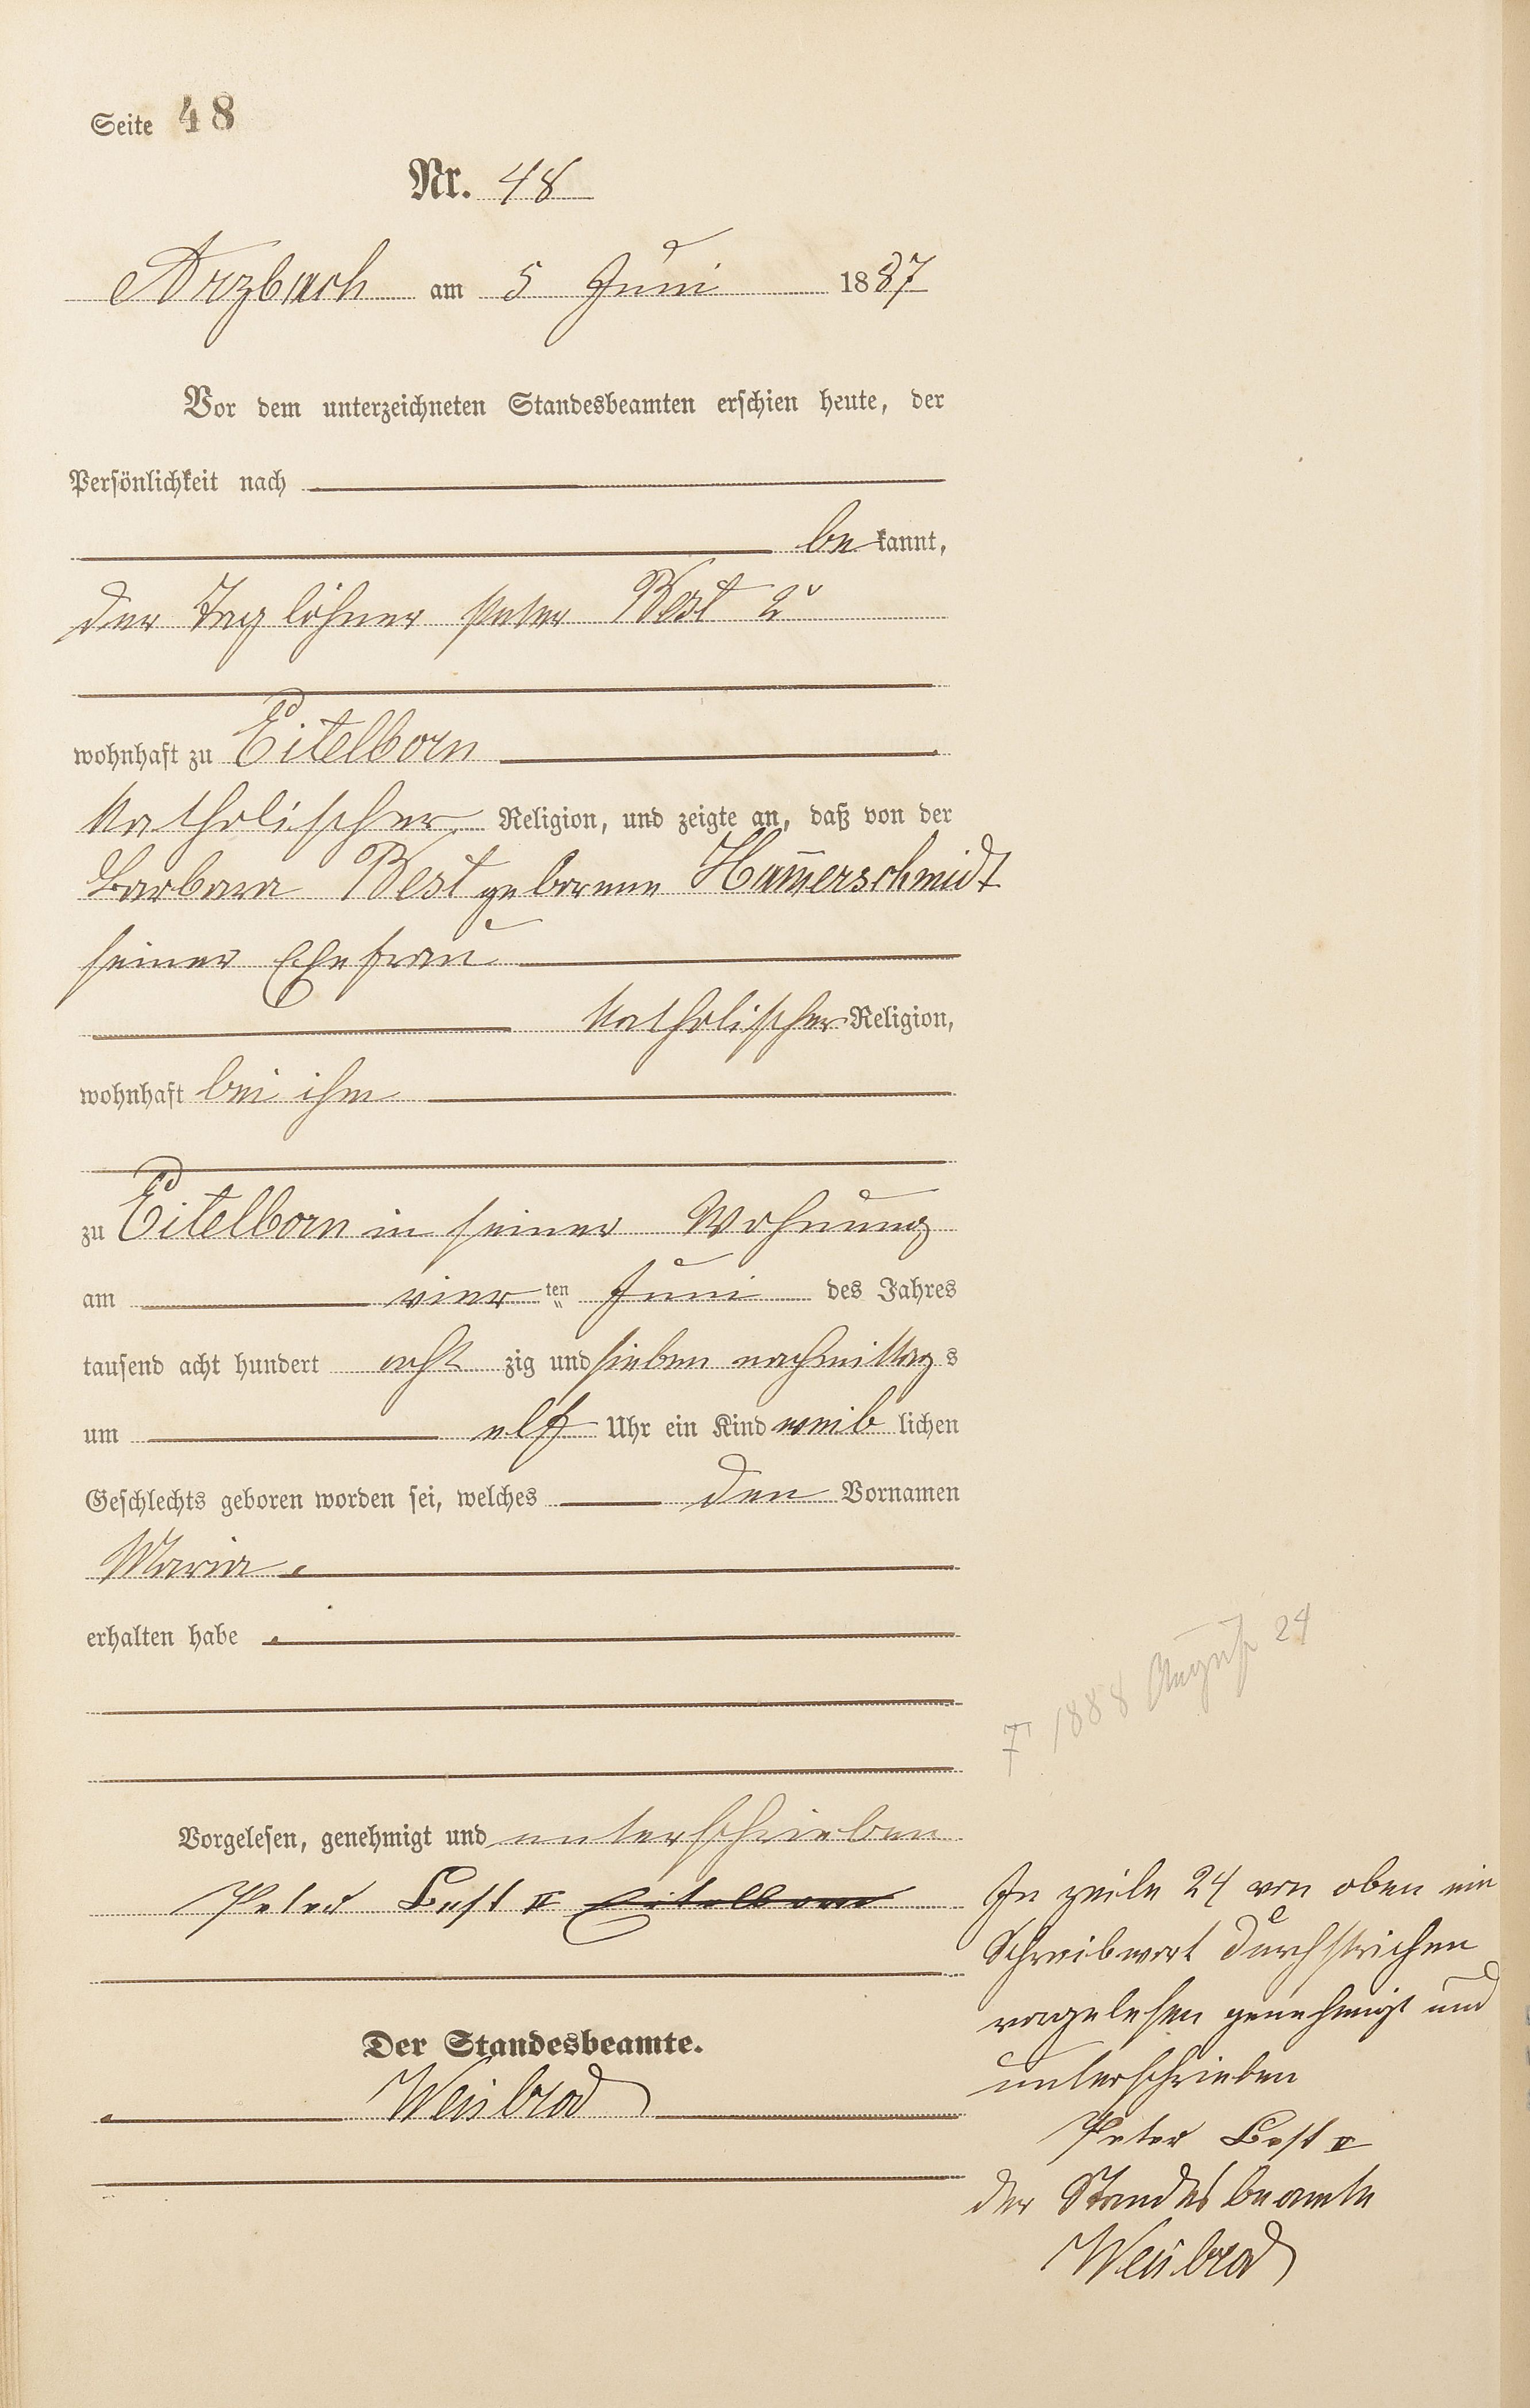 Seite 48
Nr. 48
Arzbach am 5 Juni 1887
Vor dem unterzeichneten Standesbeamten erschien heute, der
Persönlichkeit nach
bekannt,
der Taglöhner Peter Best 2r
wohnhaft zu Eitelborn
katholischer Religion, und zeigte an, daß von der
Barbara Best geborenen Ham̄erschmidt
seiner Ehefrau
katholischer Religion,
wohnhaft bei ihm
zu Eitelborn in seiner Wohnung
am vierten Juni des Jahres
tausend acht hundert achtzig und sieben nachmittags
um elf Uhr ein Kind weiblichen
Geschlechts geboren worden sei, welches den Vornamen
Maria
erhalten habe
Vorgelesen, genehmigt und unterschrieben
Peter Best II Eitelborn
Der Standesbeamte.
Weisbrod
† 1888 August 24
In zeile 24 von oben ein
Schreibwort durchstrichen
vorgelesen genehmigt und
unterschrieben
Peter Best II
der Standesbeamte
Weisbrod